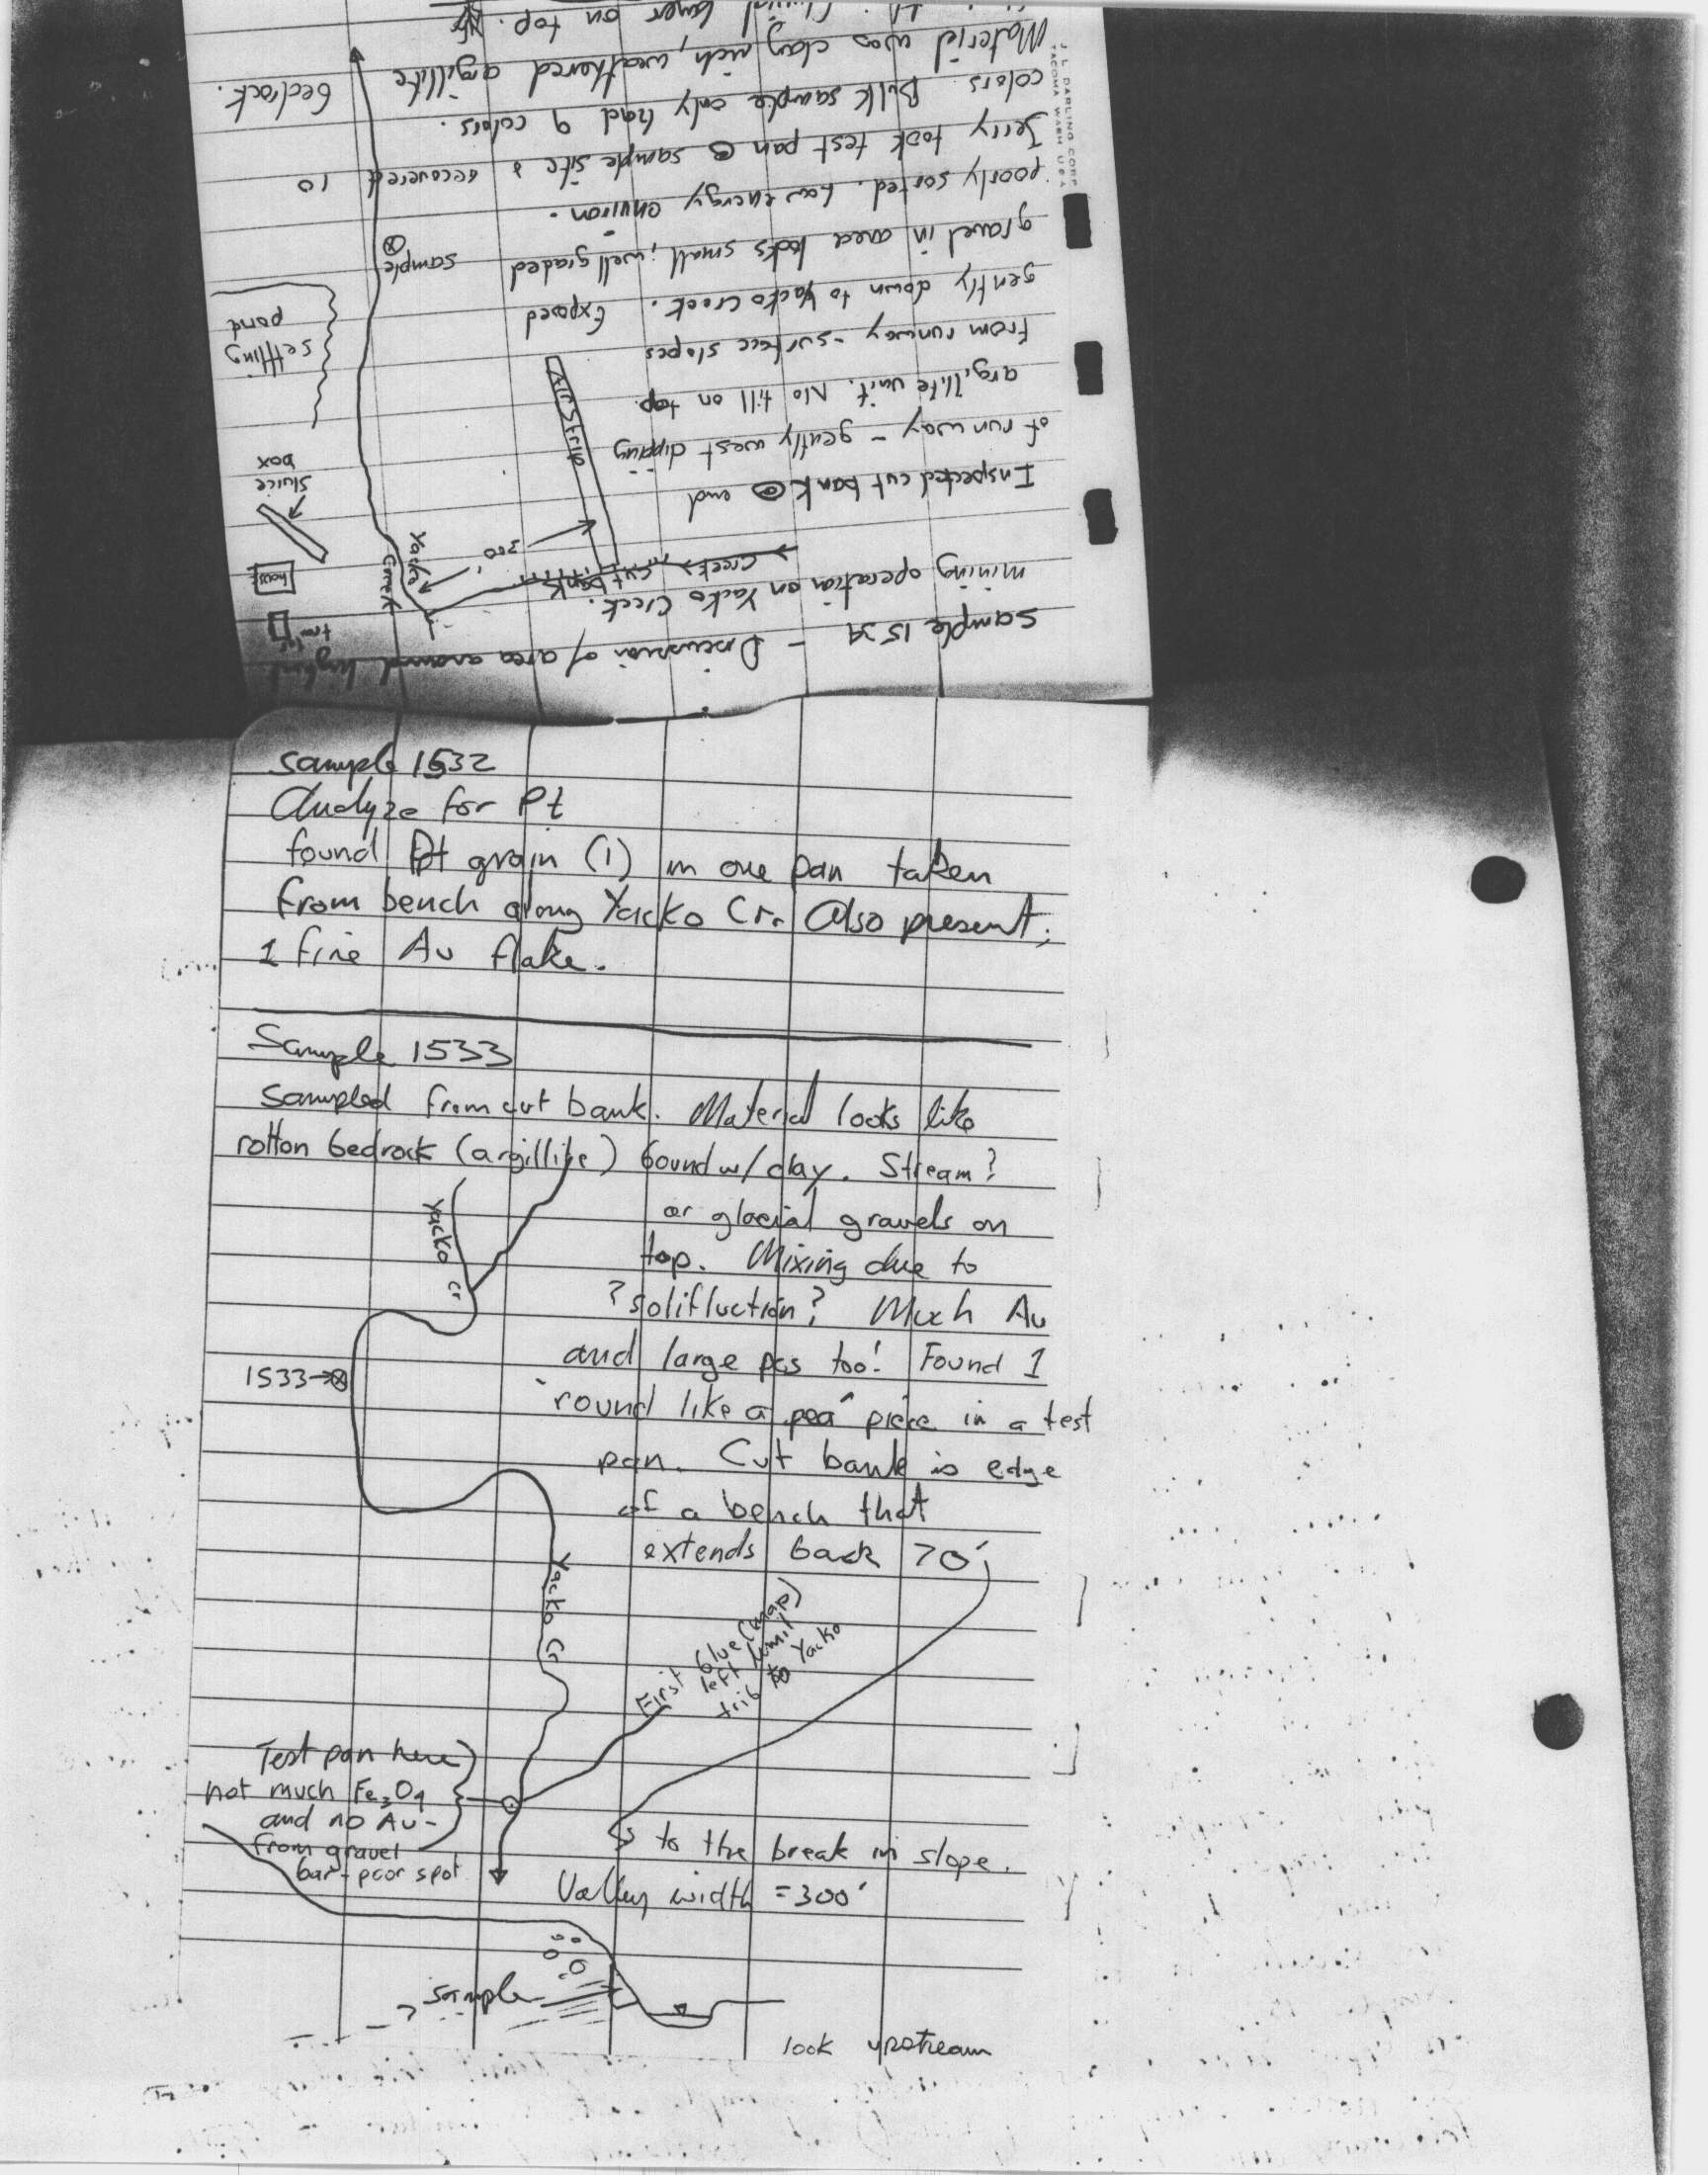 sample 1532
Analyze for Pt
found Pt grain (1) in one pan taken
from bench along Yacko Cr. Also present;
1 fine Au flake.
Sample 1533
sampled from cut bank. Material looks like
rotton bedrock (argillite) bound w/ clay. Stream?
or glacial gravels on
top. Mixing due to
?solifluction? Much Au
and large pcs too! Found 1
"round like a pea" piece in a test
pan. Cut bank is edge
of a bench that
extends back 70'
to the break in slope.
Valley width = 300'
Yacko Cr
1533
Yacko Cr
First blue (map)
left limit
trib to Yacko
Test pan here
not much Fe3O4
and no Au -
from gravel
bar - poor spot
sample
?
look upstream
Sample 1534 - Discussion of area around
mining operation on Yacko Creek.
Inspected cut bank @ end
of runway - gently west dipping
argillite unit. No till on top.
From runway - surface slopes
gently down to Yacko Creek. Exposed
gravel in area looks small; well graded
poorly sorted. Low energy environ.
Jerry took test pan @ sample site & recovered 10
colors. Bulk sample only had 9 colors.
Material was clay rich, weathered argillite bedrock.
layer on top.
Creek
cut bank
300'
Airstrip
Yacko
Creek
house
sluice
box
settling
pond
sample
J. L. DARLING CORP
TACOMA WASH U S A